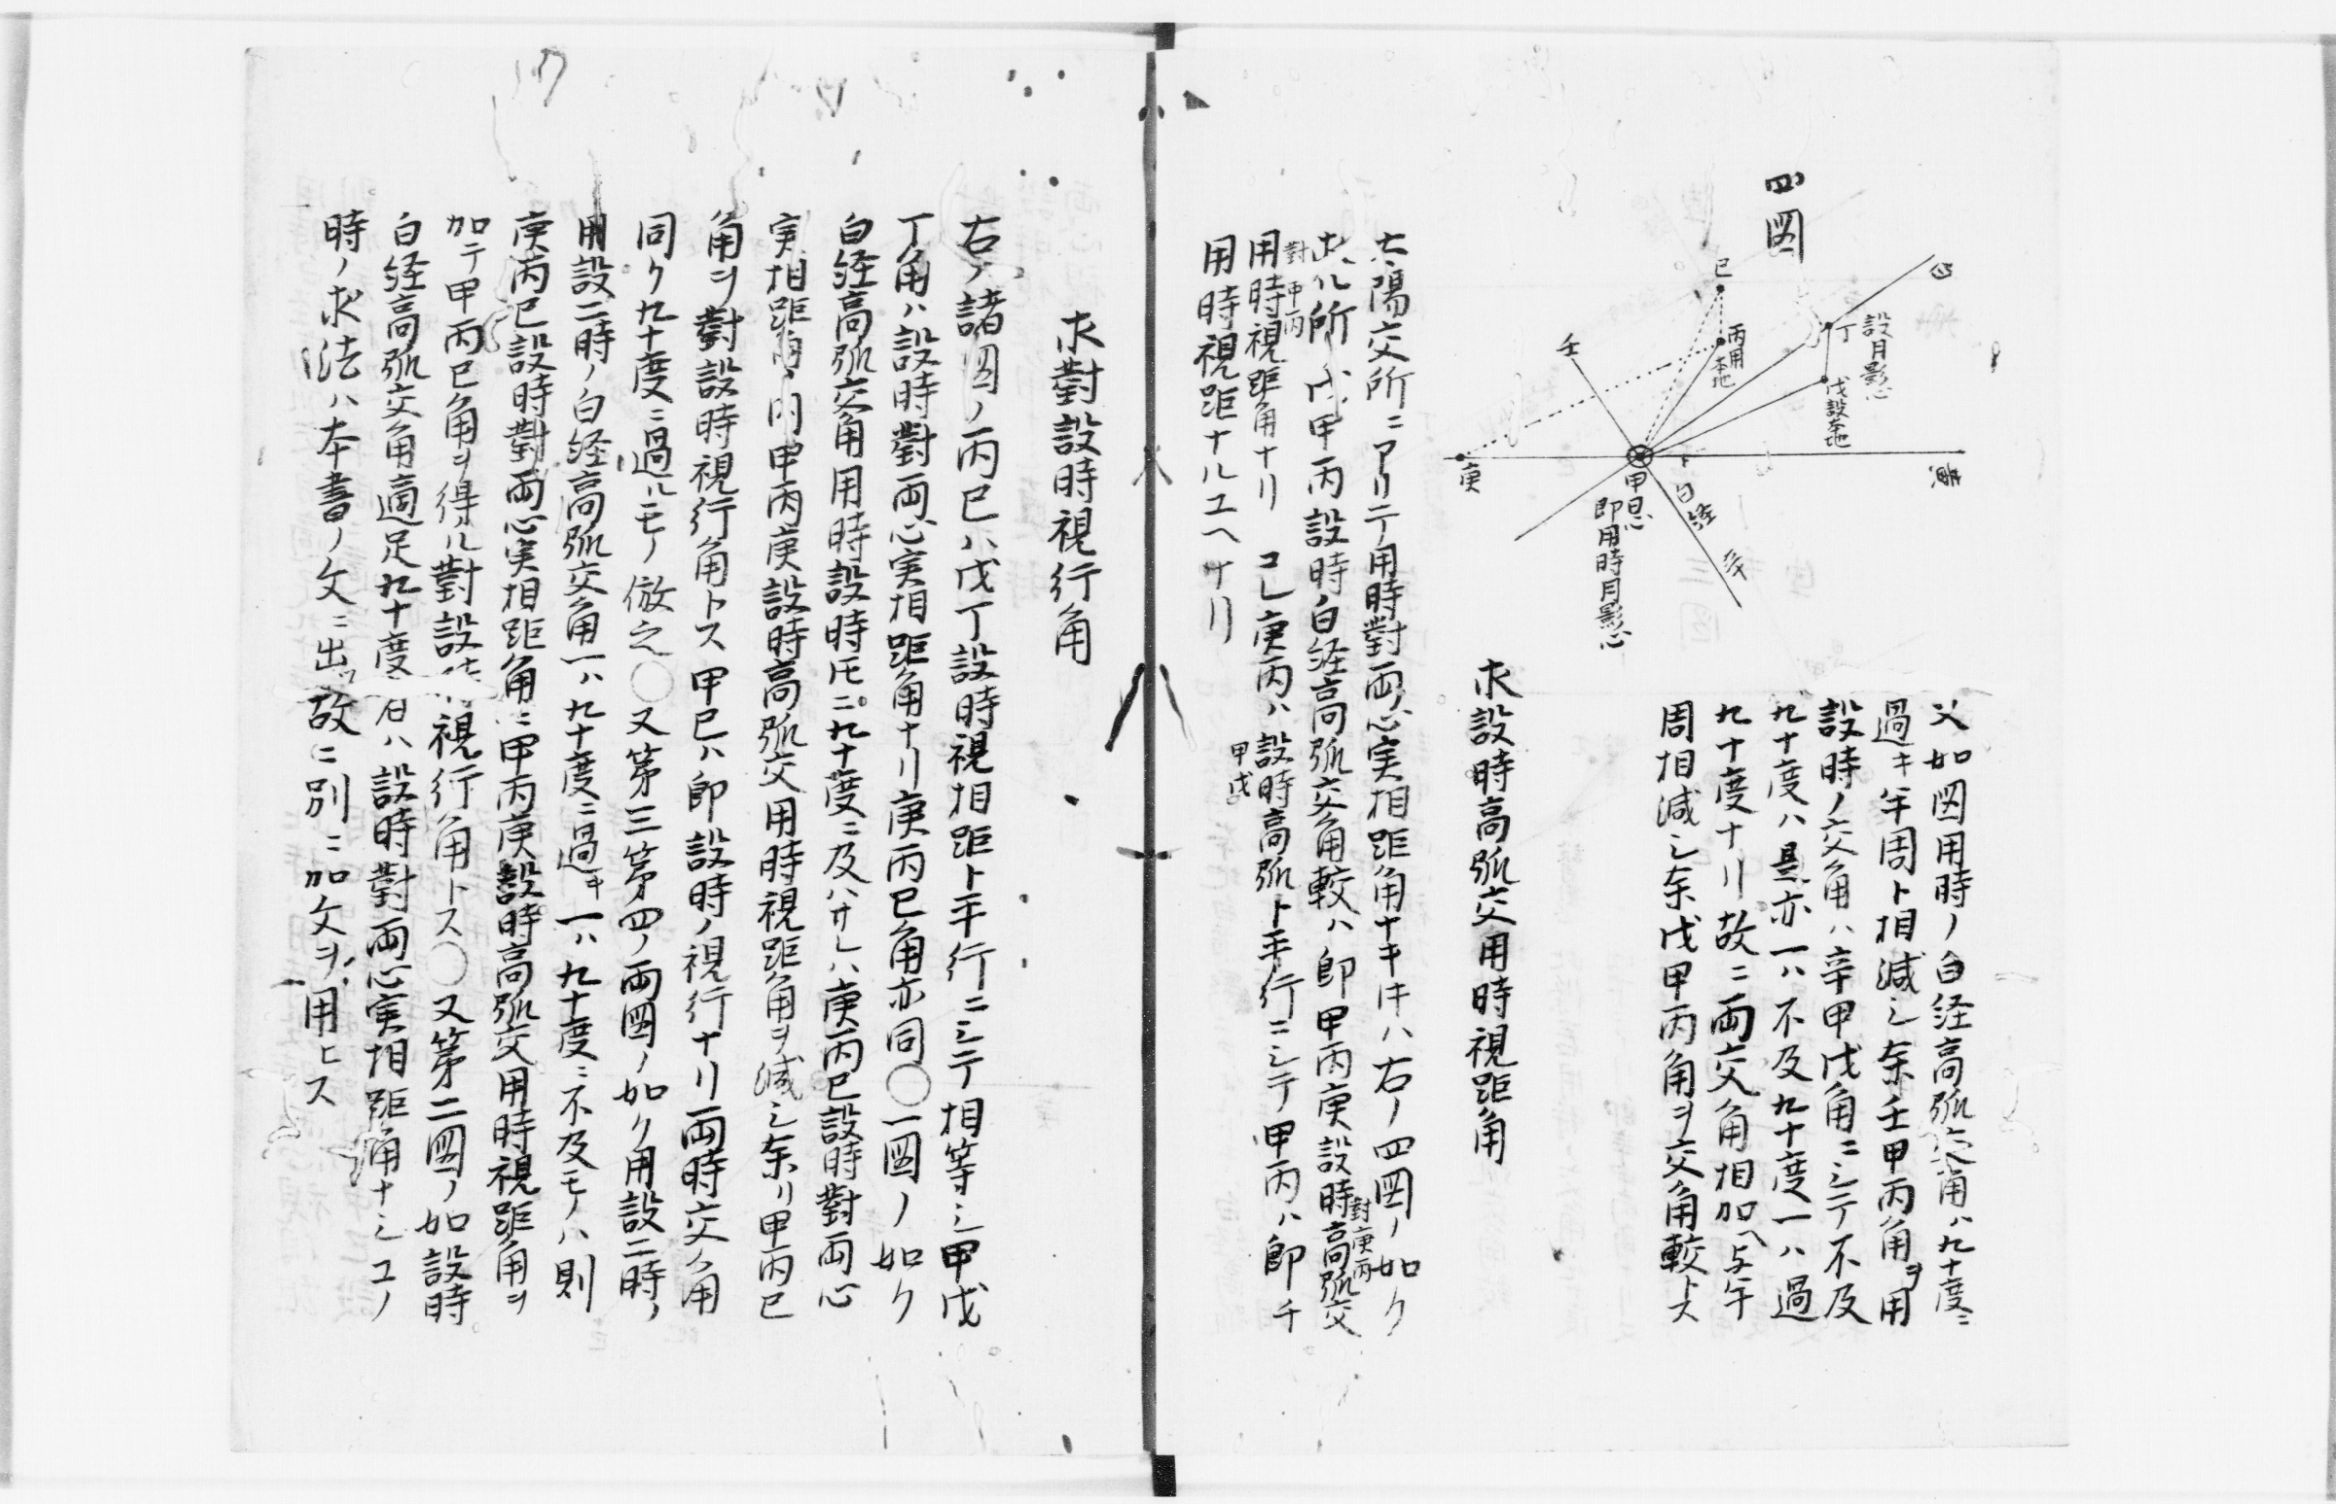 四図
白
丁
設月影心
戊設本地
黄
巳
丙用本地
壬
庚
甲日心
即用時月影心
白経
辛
又如図用時ノ白経高弧交角ハ九十度ニ
過キ半周ト相減シ余壬甲丙角ヲ用
設時ノ交角ハ辛甲戊角ニシテ不及
九十度ハ是亦一ハ不及九十度一ハ過
九十度ナリ故ニ両交角相加ヘ与半
周相減シ余戊甲丙角ヲ交角較トス
求設時高弧交用時視距角
太陽交所ニアリテ用時對両心実相距角ナキ𪜈ハ右ノ四図ノ如ク
此ル所戊甲丙設時ノ白経高弧交角較ハ即甲丙庚設時高弧交
對庚丙
對甲丙
用時視距角ナリ コレ庚丙ハ設時高弧ト平行ニシテ甲丙ハ即チ
甲戊
用時視距ナルユヘナリ
求對設時視行角
右ノ諸図ノ丙巳ハ戊丁設時視相距ト平行ニシテ相等シ甲戊
丁角ハ設時對両心実相距角ナリ庚丙巳角亦同〇一図ノ如ク
白経高弧交角用時設時𪜈ニ九十度ニ及ハサレハ庚丙巳設時對両心
実相距角ノ内甲丙庚設時高弧交用時視距角ヲ減シ余リ甲丙巳
角ヲ對設時視行角トス甲巳ハ即設時ノ視行ナリ両時交角
同ク九十度ニ過ルモノ倣之〇又第三第四ノ両図ノ如ク用設二時ノ
用設二時ノ白経高弧交角一ハ九十度ニ過キ一ハ九十度ニ不及モノハ則
庚丙巳設時對両心実相距角ニ甲丙庚設時高弧交用時視距角ヲ
加テ甲丙巳角ヲ得ル對設時視行角トス〇又第二図ノ如設時
白経高弧交角適足九十度ハ設時對両心実相距角ナシユノ
時ノ求法ハ本書ノ文ニ出ツ故ニ別ニ加文ヲ用ヒス